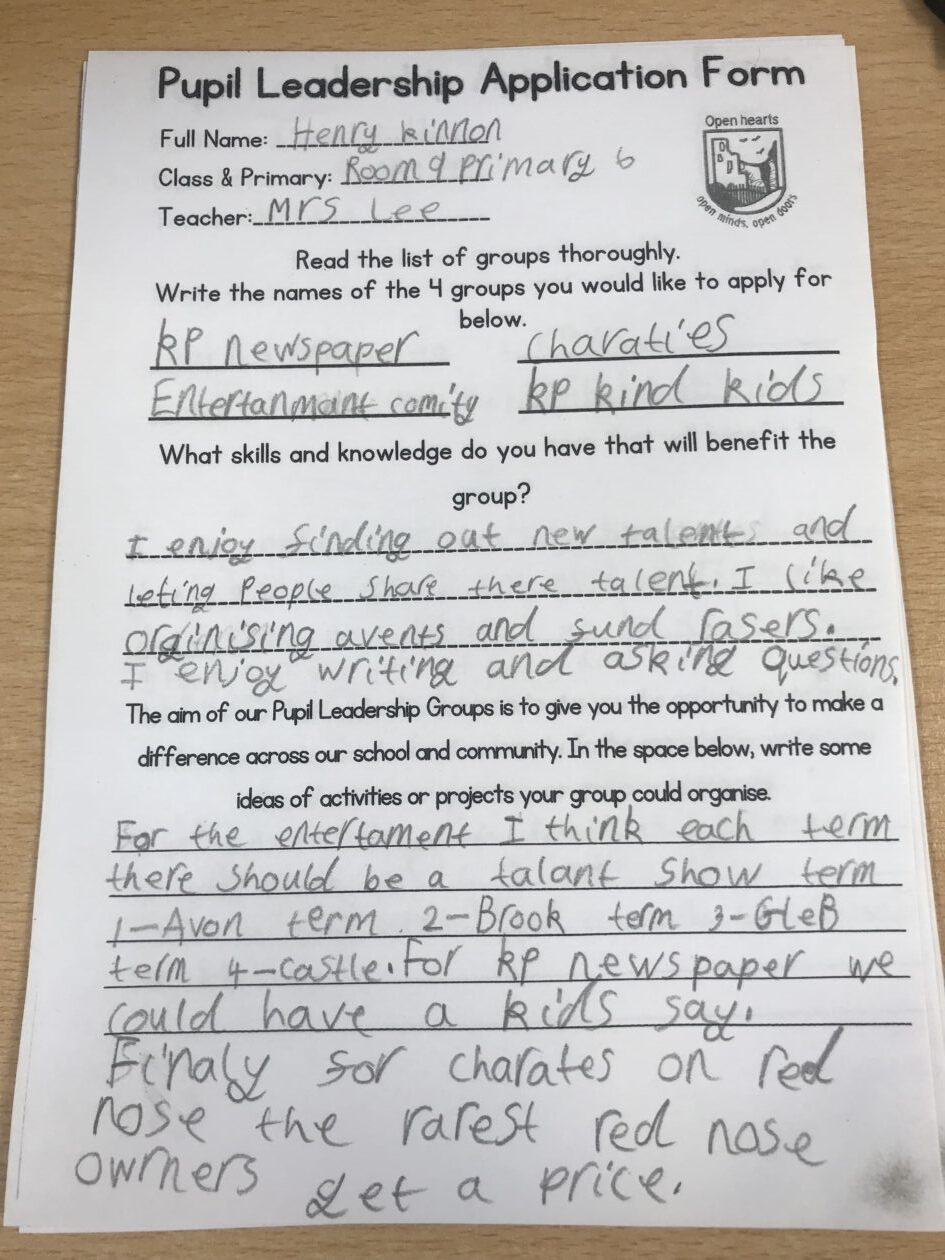 Pupil Leadership Application Form
Full Name: Henry kinnon
Open hearts
open minds, open doors
Class & Primary: Room 9 Primary 6
Teacher: Mrs Lee
Read the list of groups thoroughly.
Write the names of the 4 groups you would like to apply for
below.
kp newspaper charaties
Entertanmant comity kp kind kids
What skills and knowledge do you have that will benefit the
group?
I enjoy finding out new talents and
leting People share there talent. I like
orginising avents and fund rasers.
I enjoy writing and asking questions.
The aim of our Pupil Leadership Groups is to give you the opportunity to make a
difference across our school and community. In the space below, write some
ideas of activities or projects your group could organise.
For the entertament I think each term
there should be a talant show term
1-Avon term 2-Brook term 3-GleB
term 4-castle. For kp newspaper we
could have a kids say.
Finaly for charates on red
nose the rarest red nose
owners get a price.